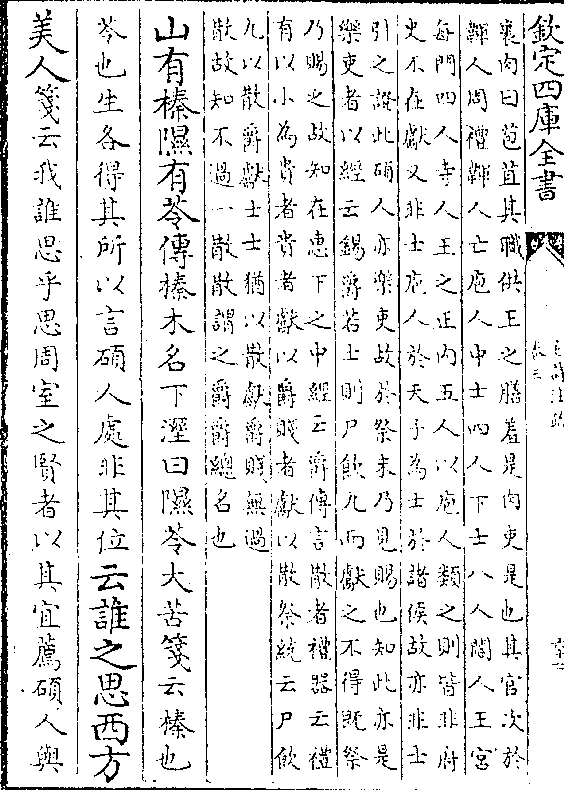 欽定四庫全書
裏肉曰苞苴其職供王之膳羞是肉吏是也其官次於
韗人周禮韗人亡庖人中士四人下士八人閽人王宮
每門四人寺人王之正内五人以庖人類之則皆非府
史不在獻又非士庖人於天子為士於諸侯故亦非士
引之證此碩人亦樂吏故於祭末乃見賜也知此亦是
樂吏者以經云錫爵若士則尸飲九而獻之不得既祭
乃賜之故知在惠下之中經云爵傳言散者禮器云禮
有以小為貴者貴者獻以爵賤者獻以散祭統云尸飲
九以散爵獻士士猶以散獻爵賤無過
散故知不過一散散謂之爵爵總名也
山有榛隰有苓傳榛木名下溼曰隰苓大苦箋云榛也
苓也生各得其所以言碩人處非其位云誰之思西方
美人箋云我誰思乎思周室之賢者以其宜薦碩人與